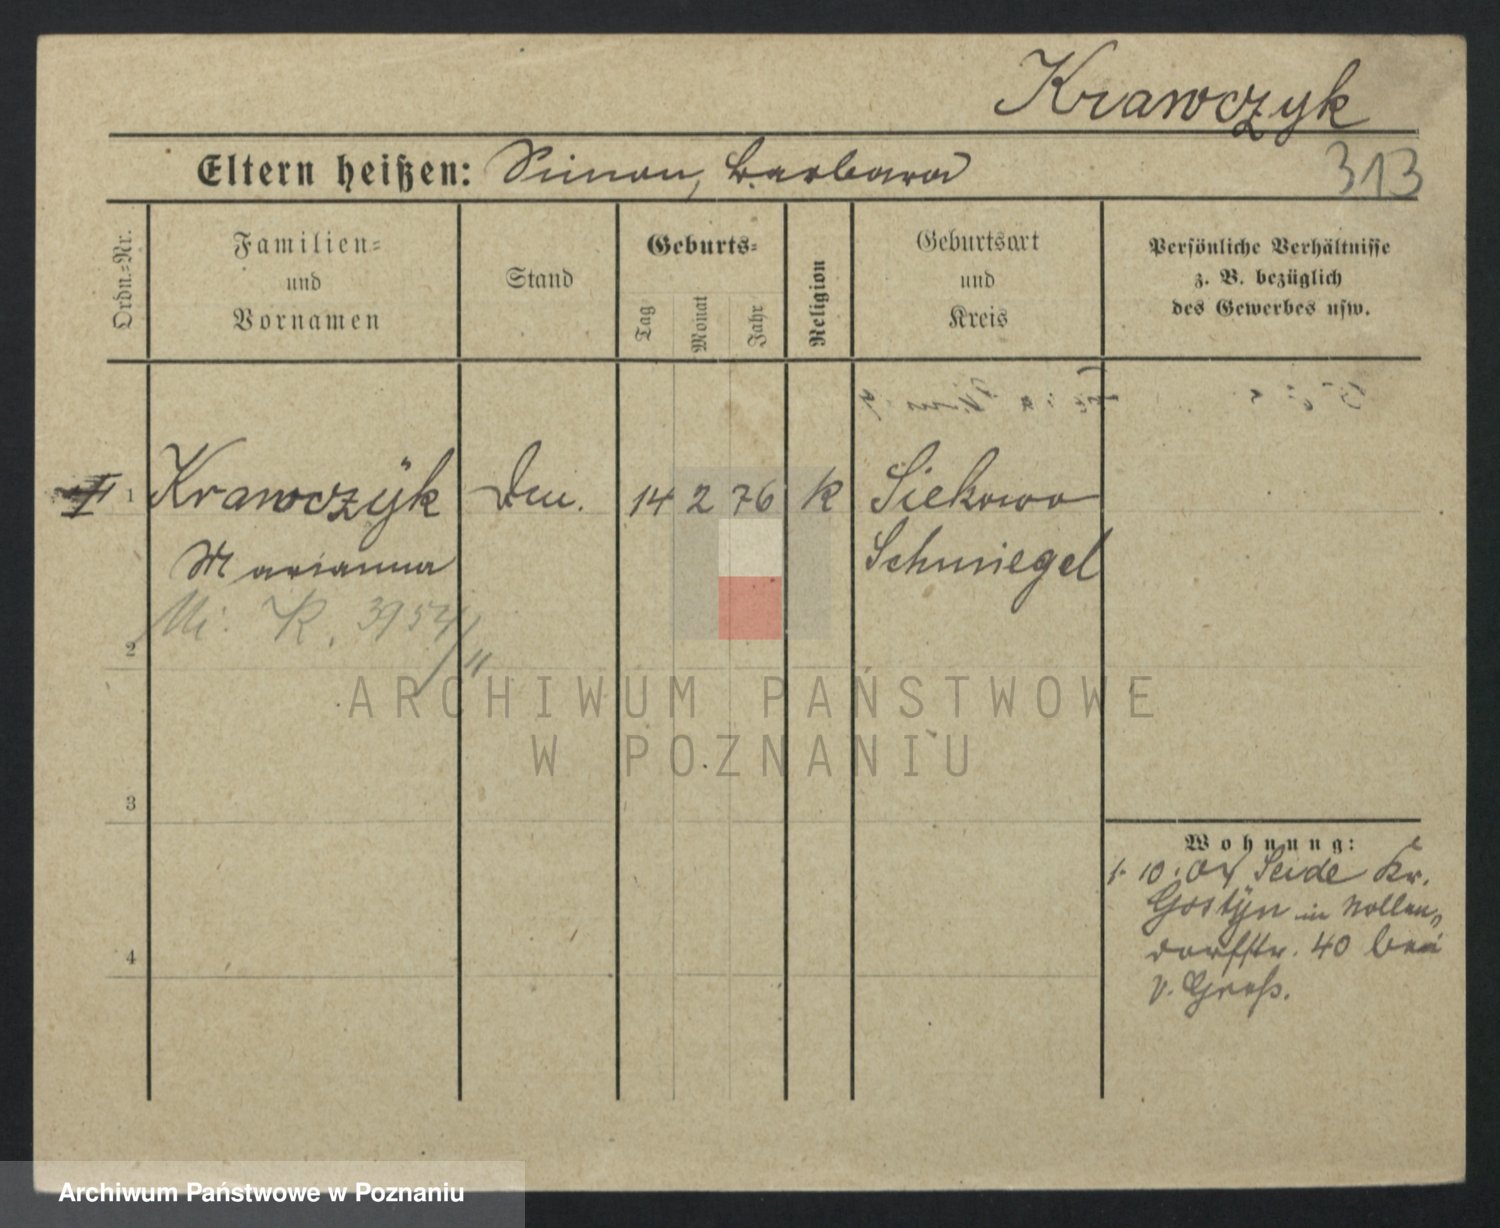 Krawczyk
Eltern heißen: Simon, Barbara
313
Ordn.=Nr.
Familien=
und
Vornamen
Stand
Geburts=
Tag
Monat
Jahr
Religion
Geburtsort
und
Kreis
Persönliche Verhältnisse
z. B. bezüglich
des Gewerbes usw.
1 Krawczÿk 14 2 76 K Siekowo
Marianna Schmiegel
K. 3954/11
2
ARCHIWUM PAŃSTWOWE
W POZNANIU
3
4
Wohnung:
1. 10. 04 Seide Kr.
Gostÿn in Nollen=
dorfstr. 40 bei
v.
Archiwum Państwowe w Poznaniu